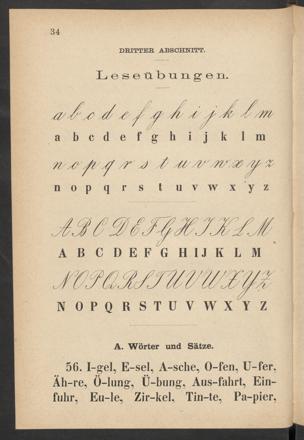 34
DRITTER ABSCHNITT.
Leseübungen.
a b c d e f g h i j k l m
a b c d e f g h i j k l m
n o p q r s t u v w x y z
n o p q r s t u v w x y z
A B C D E F G H I J K L M
A B C D E F G H I J K L M
N O P Q R S T U V W X Y Z
N O P Q R S T U V W X Y Z
A. Wörter und Sätze.
56. I-gel, E-sel, A-sche, O-fen, U-fer,
Äh-re, Ö-lung, Ü-bung, Aus-fahrt, Ein-
fuhr, Eu-le, Zir-kel, Tin-te, Pa-pier,